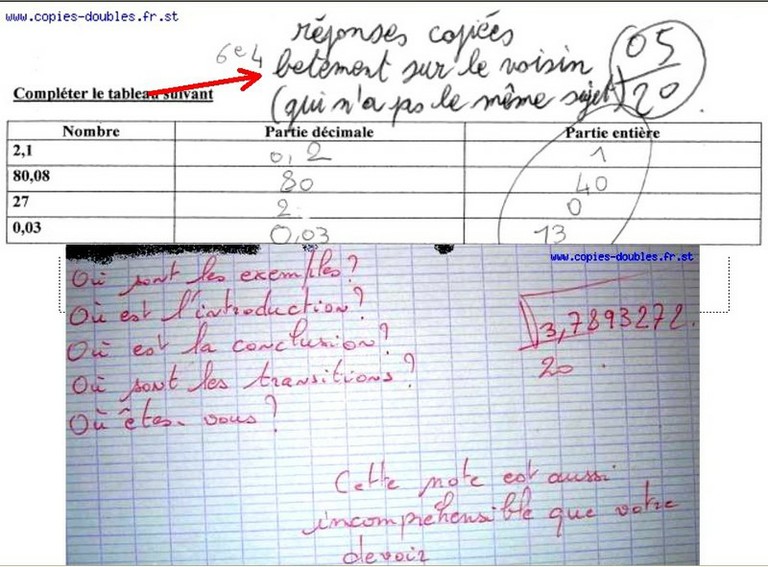 www.copies-doubles.fr.st
réponses copiées
6e4 betement sur le voisin 05
(qui n'a pas le même sujet) 20
Compléter le tableau suivant
Nombre Partie décimale Partie entière
2,1 0,2 1
80,08 80 40
27 2 0
0,03 0,03 13
www.copies-doubles.fr.st
Où sont les exemples?
Où est l'introduction?
Où est la conclusion?
Où sont les transitions?
Où êtes-vous?
√3,7893272
20
Cette note est aussi
incompréhensible que votre
devoir